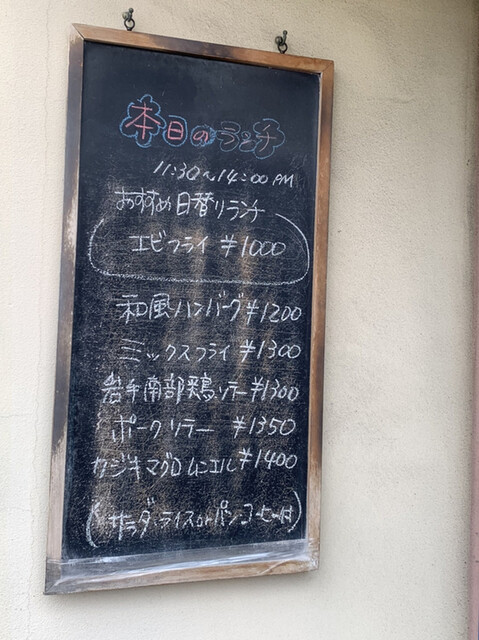 本日のランチ
11:30〜14:00 PM
おすすめ日替りランチ
エビフライ ¥1000
和風ハンバーグ ¥1200
ミックスフライ ¥1300
岩手南部鶏ソテー ¥1300
ポークソテー ¥1350
カジキマグロムニエル ¥1400
(サラダ・ライスorパン・コーヒー付)